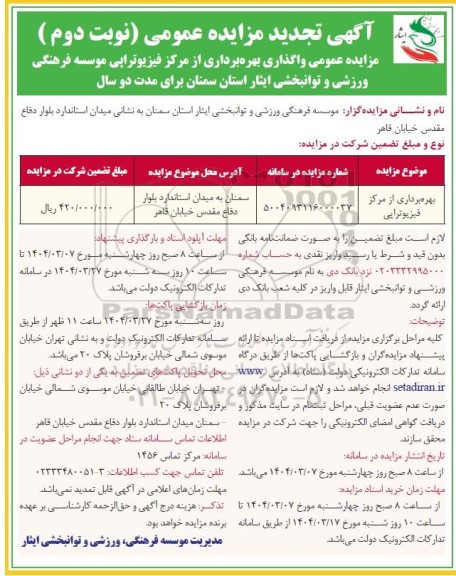 آگهی تجدید مزایده عمومی (نوبت دوم)
مزایده عمومی واگذاری بهره‌برداری از مرکز فیزیوتراپی موسسه فرهنگی
ورزشی و توانبخشی ایثار استان سمنان برای مدت دو سال
ایثار
نام و نشانی مزایده‌گزار: موسسه فرهنگی ورزشی و توانبخشی ایثار استان سمنان به نشانی میدان استاندارد بلوار دفاع
مقدس خیابان قاهر
نوع و مبلغ تضمین شرکت در مزایده:
موضوع مزایده شماره مزایده در سامانه آدرس محل موضوع مزایده مبلغ تضمین شرکت در مزایده
بهره‌برداری از مرکز فیزیوتراپی ۵۰۰۴۰۹۳۱۱۶۰۰۰۰۳۷ سمنان به میدان استاندارد بلوار دفاع مقدس خیابان قاهر ۴۲۰/۰۰۰/۰۰۰ ریال
لازم است مبلغ تضمین را به صورت ضمانت‌نامه بانکی
بدون قید و شرط یا رسید واریز نقدی به حساب شماره
۰۲۰۳۳۳۲۹۹۵۰۰۰ نزد بانک دی به نام موسسه فرهنگی
ورزشی و توانبخشی ایثار قابل واریز در کلیه شعب بانک دی
ارائه گردد.
توضیحات:
کلیه مراحل برگزاری مزایده از دریافت اسناد مزایده تا ارائه
پیشنهاد مزایده‌گران و بازگشایی پاکت‌ها از طریق درگاه
سامانه تدارکات الکترونیکی دولت (ستاد) به آدرس www.
setadiran.ir انجام خواهد شد و لازم است مزایده‌گران در
صورت عدم عضویت قبلی، مراحل ثبت‌نام در سایت مذکور و
دریافت گواهی امضای الکترونیکی را جهت شرکت در مزایده
محقق سازند.
تاریخ انتشار مزایده در سامانه:
از ساعت ۸ صبح روز چهارشنبه مورخ ۱۴۰۴/۰۳/۰۷ می‌باشد.
مهلت زمان خرید اسناد مزایده:
از ساعت ۸ صبح روز چهارشنبه مورخ ۱۴۰۴/۰۳/۰۷ تا
ساعت ۱۰ روز شنبه مورخ ۱۴۰۴/۰۳/۱۷ از طریق سامانه
تدارکات الکترونیک دولت می‌باشد.
مهلت آپلود اسناد و بارگذاری پیشنهاد:
از ساعت ۸ صبح روز چهارشنبه مورخ ۱۴۰۴/۰۳/۰۷ تا
ساعت ۱۰ روز سه شنبه مورخ ۱۴۰۴/۰۳/۲۷ در سامانه
تدارکات الکترونیک دولت می‌باشد.
زمان بازگشایی پاکت‌ها:
روز سه‌شنبه مورخ ۱۴۰۴/۰۳/۲۷ ساعت ۱۱ ظهر از طریق
سامانه تدارکات الکترونیک دولت و به نشانی تهران خیابان
موسوی شمالی خیابان برفروشان پلاک ۲۰ می‌باشد.
محل تحویل پاکت‌های تضمین به یکی از دو نشانی ذیل:
- تهران خیابان طالقانی خیابان موسوی شمالی خیابان
برفروشان پلاک ۲۰
- سمنان میدان استاندارد بلوار دفاع مقدس خیابان قاهر
اطلاعات تماس سامانه ستاد جهت انجام مراحل عضویت در
سامانه: مرکز تماس ۱۴۵۶
تلفن تماس جهت کسب اطلاعات: ۳-۰۲۳۳۳۴۸۰۰۵۱
مهلت زمان‌های اعلامی در آگهی قابل تمدید نمی‌باشد.
تذکر: هزینه درج آگهی و حق‌الزحمه کارشناسی بر عهده
برنده مزایده خواهد بود.
مدیریت موسسه فرهنگی، ورزشی و توانبخشی ایثار
ParsNamadData
۰۲۱-۸۸۳۴۹۶۷۰-۵